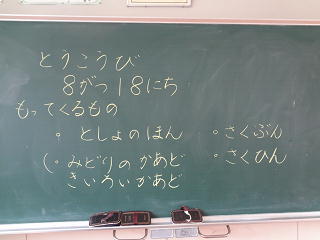 とうこうび
8がつ18にち
もってくるもの
・としょのほん ・さくぶん
(・みどりのかあど ・さくひん
きいろいかあど